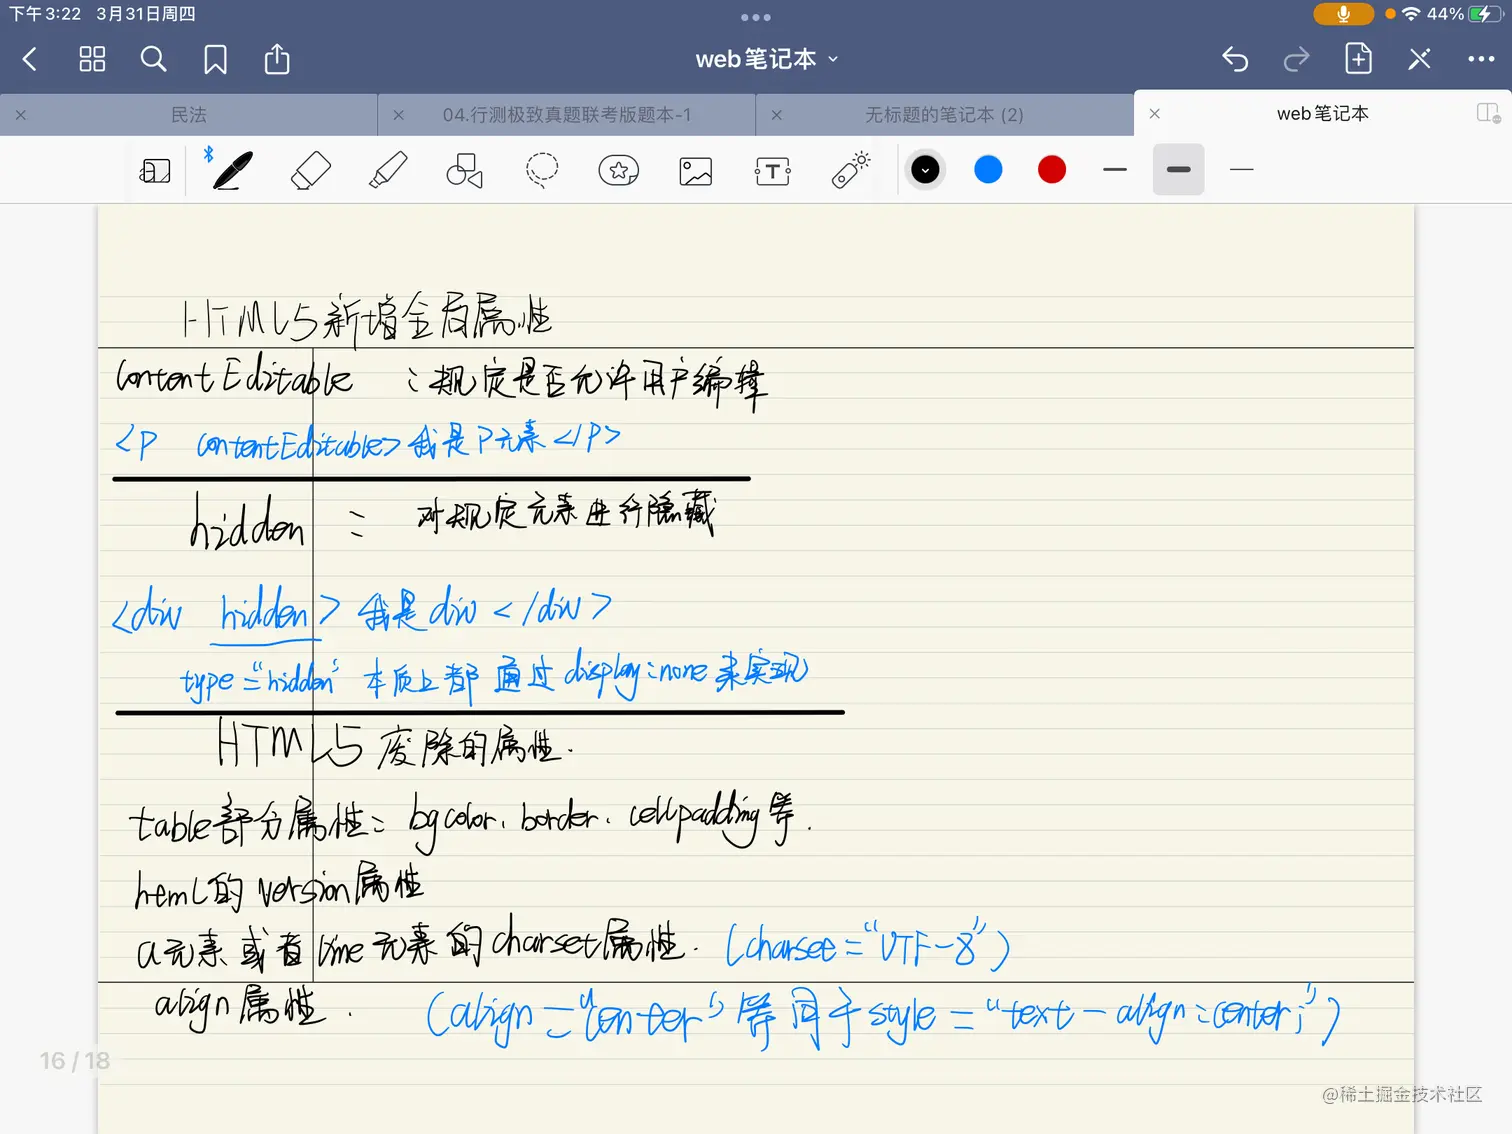 下午3:22 3月31日周四
44%
web笔记本
民法
04.行测极致真题联考版题本-1
无标题的笔记本 (2)
web笔记本
HTML5新增全局属性
contentEditable :规定是否允许用户编辑
<P contentEditable>我是P元素</P>
hidden : 对规定元素进行隐藏
<div hidden>我是div</div>
type="hidden" 本质上都通过display:none来实现
HTML5废除的属性.
table部分属性:bgcolor、border、cellpadding等.
html的version属性
a元素或者line元素的charset属性. (charset="UTF-8")
align属性. (align="center"等同于style="text-align:center;")
16 / 18
@稀土掘金技术社区